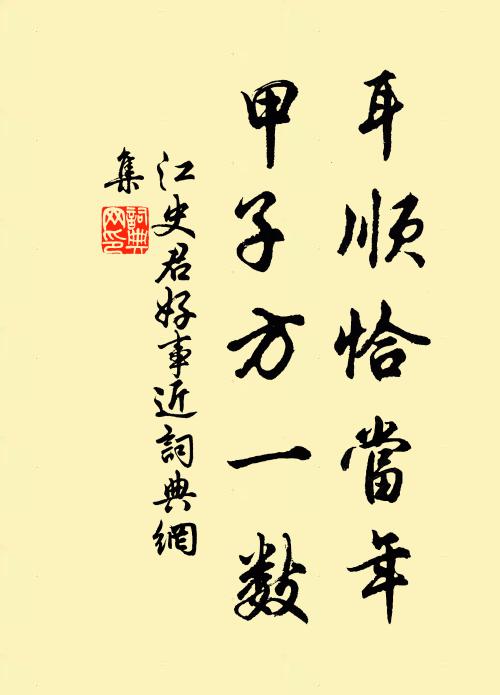 耳順恰當年
甲子方一数
江史君好事近詞典網
集
詞典
网印